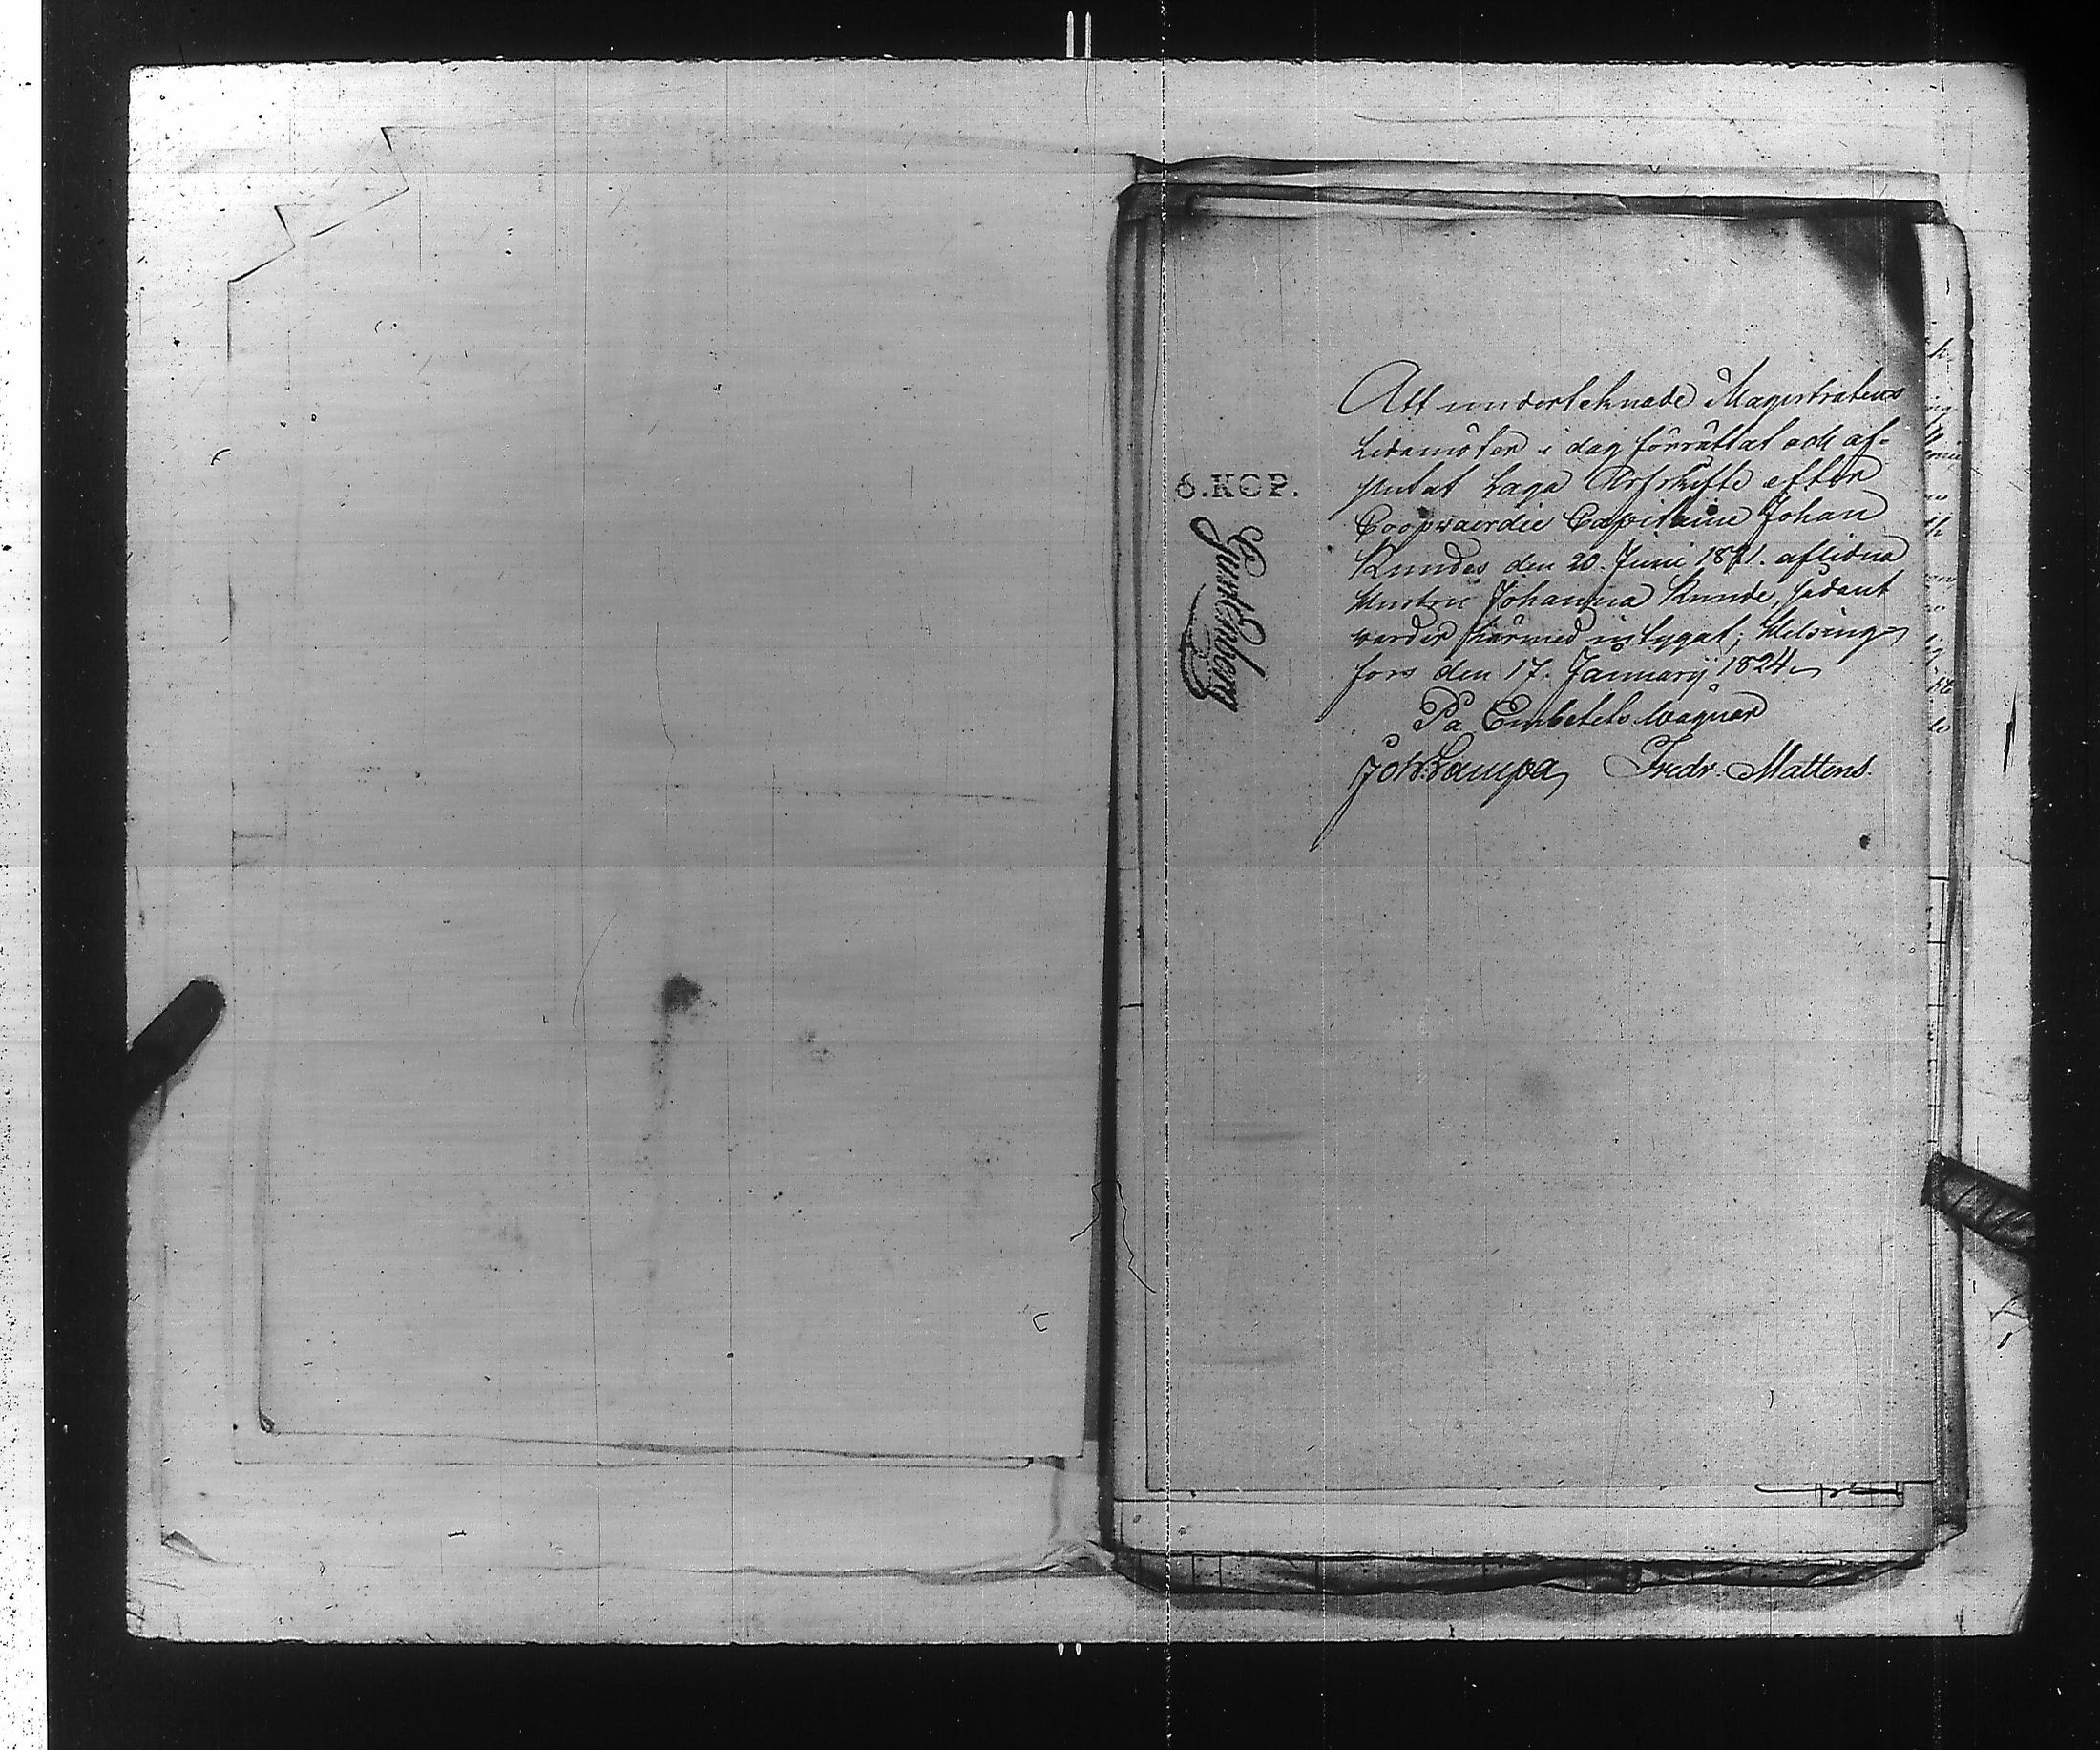 Att underteknade Magistratens
Ledamöter i dag förrättat och af-
slutat Laga Arfskifte efter
Coopvaerdie Capitaine Johan
Kundes den 20. Junii 1821. aflidna
Hustru Johanna Kunde, sådant
warder härmed intygat; Helsing-
fors den 17. Januarij 1824.
På Embetets wägnar
Joh: Lampa, Fredr. Mattens.
6.KOP.
Gyldenberg